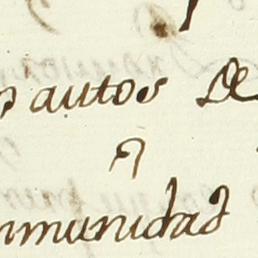 autos De
a
mmunidad